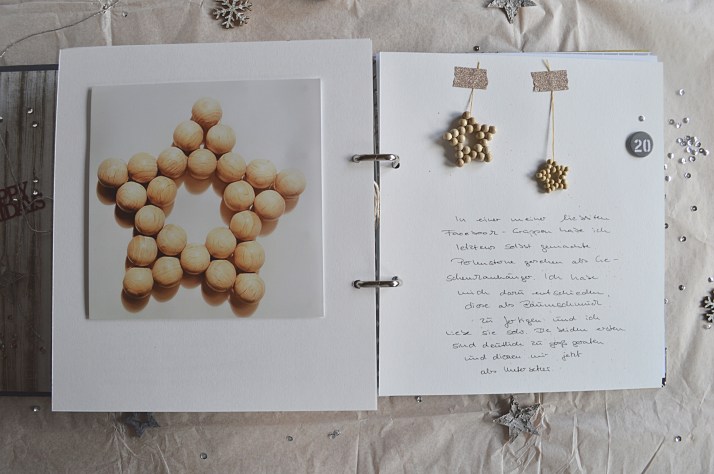 PPY
20
In einer meiner liebsten
Facebook-Gruppen habe ich
letztens selbst gemachte
sterne gesehen als Ge-
schenkanhänger. Ich habe
mich dazu entschieden,
diese als Baumschmuck
zu fertigen und ich
liebe sie sols. Die beiden ersten
sind deutlich zu groß geraten
und dienen mir jetzt
als Untersetzer.